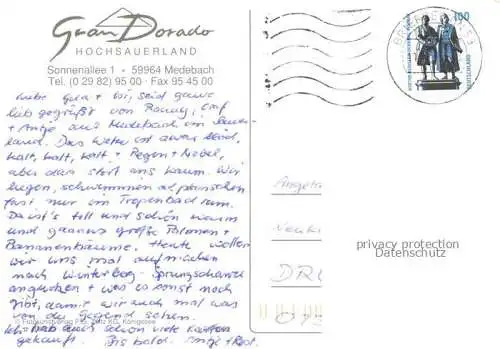 Gran Dorado
HOCHSAUERLAND
Sonnenallee 1 · 59964 Medebach
Tel. (0 29 82) 95 00 · Fax 95 45 00
100
Liebe + Ihr, seid ganz
lieb gegrüßt von Ronny, Olaf
+ Antje aus Medebach im Sauer-
land. Das Wetter ist zwar blöd,
kalt, kalt, kalt + Regen + Nebel,
aber das stört uns kaum. Wir
liegen, schwimmen + planschen
fast nur im Tropenbad rum.
Da ist's toll und schön warm
und gaanz große Palmen +
Bananenbäume. Heute wollen
wir uns mal aufmachen
nach Winterberg - Sprungschanze
angucken + was es sonst noch
gibt, damit wir auch mal was
von der Gegend sehen.
Ich hab auch schon viele Karten
gekauft. Bis bald. Antje + Rest.
DR
privacy protection
Datenschutz